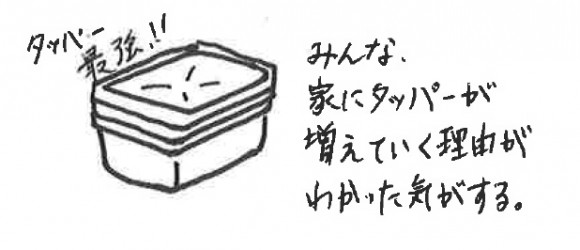 タッパー
最強!!
みんな、
家にタッパーが
増えていく理由が
わかった気がする。